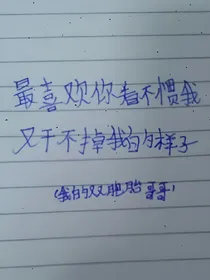 最喜欢你看不惯我
又干不掉我的样子
(我的双胞胎哥哥)